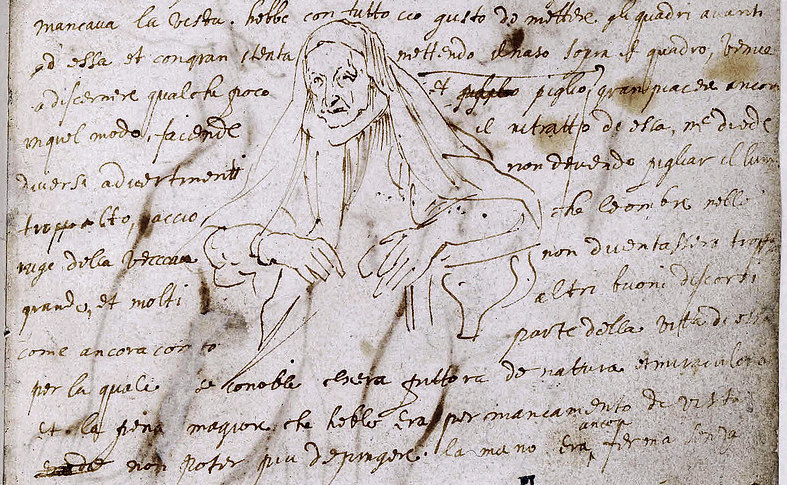 mancava la vista. hebbe con tutto cio gusto de mettere gli quadri avanti
ad essa et con gran stenta mettendo il naso sopra il quadro, venne
a discernere qualche poco et piglio gran piacere ancora
in quel modo, facende il ritratto de essa, me diede
diversi advertimenti non devendo pigliar il lume
troppo alto, accio che le ombre nelle
ruge della vecciaia non diventassero troppo
grande, et molti altri buoni discorsi
come ancora conto parte della vita di essa
per la quale se conobbe chera pittora de natura et miraculosa
et la pena magiore che hebbe era per mancamento de vista
non poter piu depingere. la mano era ancora ferma senza